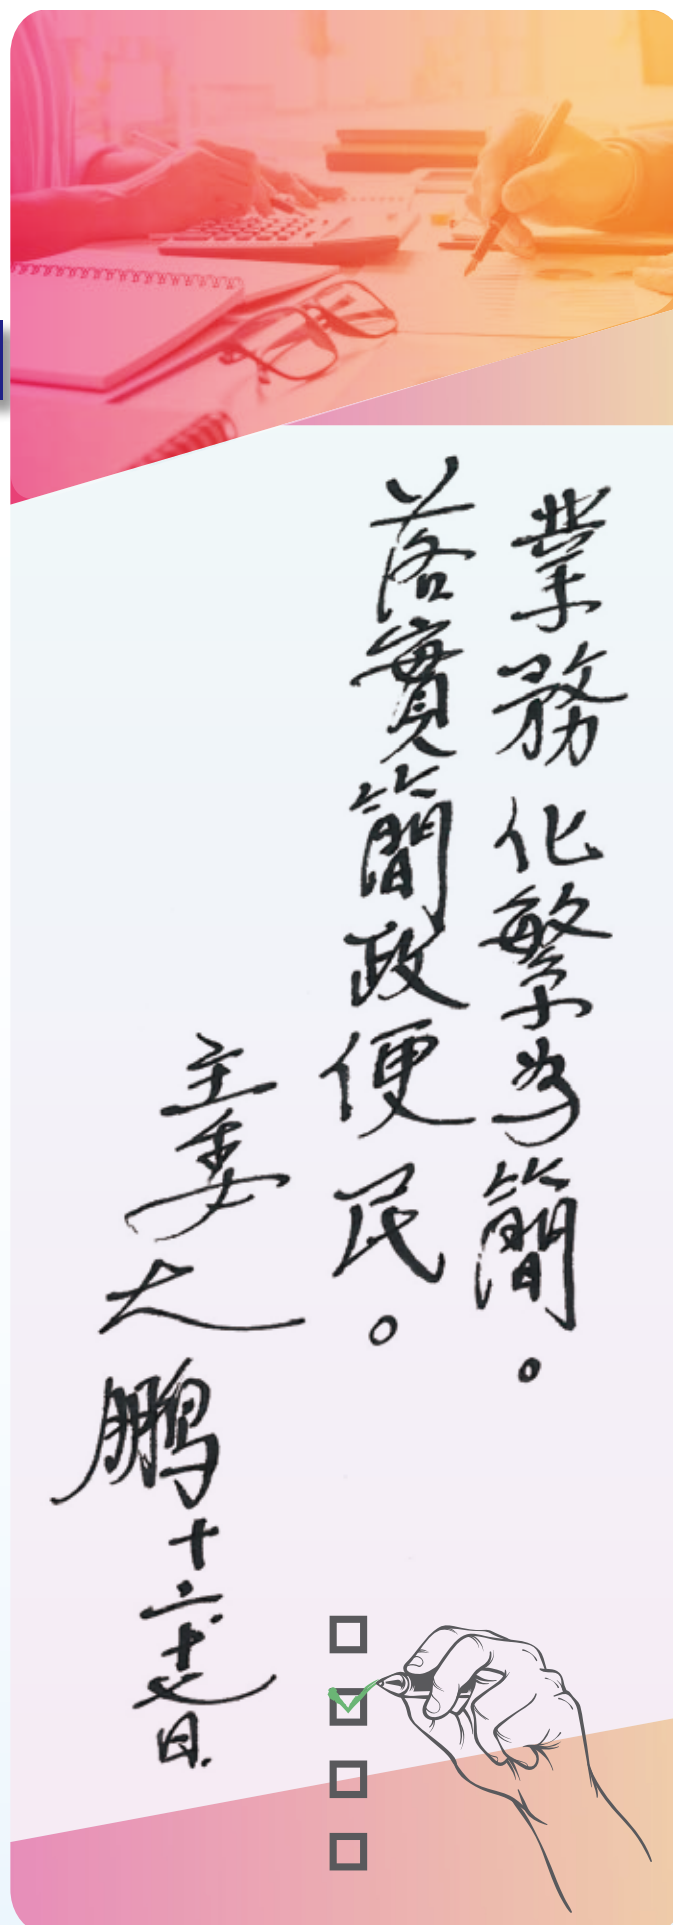 業務化繁為簡。
落實簡政便民。
主委大鵬十二
日.